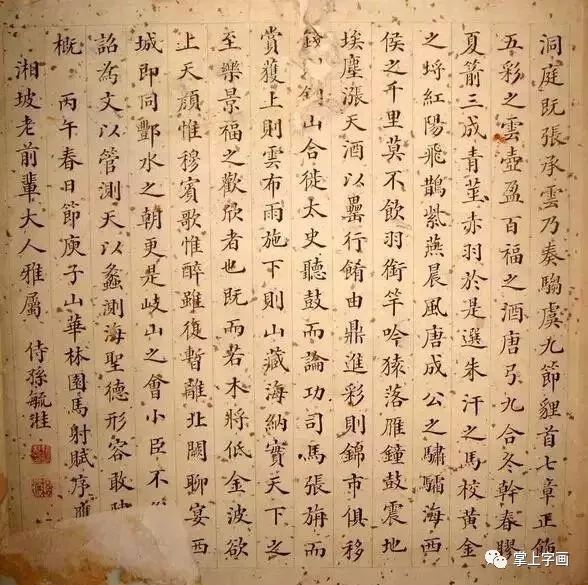 洞庭既張承雲乃奏騶虞九節貍首七章正飾
五彩之雲壺盈百福之酒唐弓九合冬幹春膠
夏箭三成青莖赤羽於是選朱汗之馬校黃金
之埒紅陽飛鵲紫燕晨風唐成公之驌驦海西
侯之千里莫不飲羽銜竿吟猿落雁鐘鼓震地
埃塵漲天酒以罍行餚由鼎進彩則錦市俱移
錢山合徙太史聽鼓而論功司馬張旃而
賞獲上則雲布雨施下則山藏海納實天下之
至樂景福之歡欣者也既而若木將低金波欲
上天顏惟穆賓歌惟醉雖復暫離北闕聊宴西
城即同酆水之朝更是岐山之會小臣不
詔為文以管測天以蠡測海聖德形容敢
概 丙午春日節庾子山華林園馬射賦序應
湘坡老前輩大人雅屬 侍孫毓溎
掌上字画